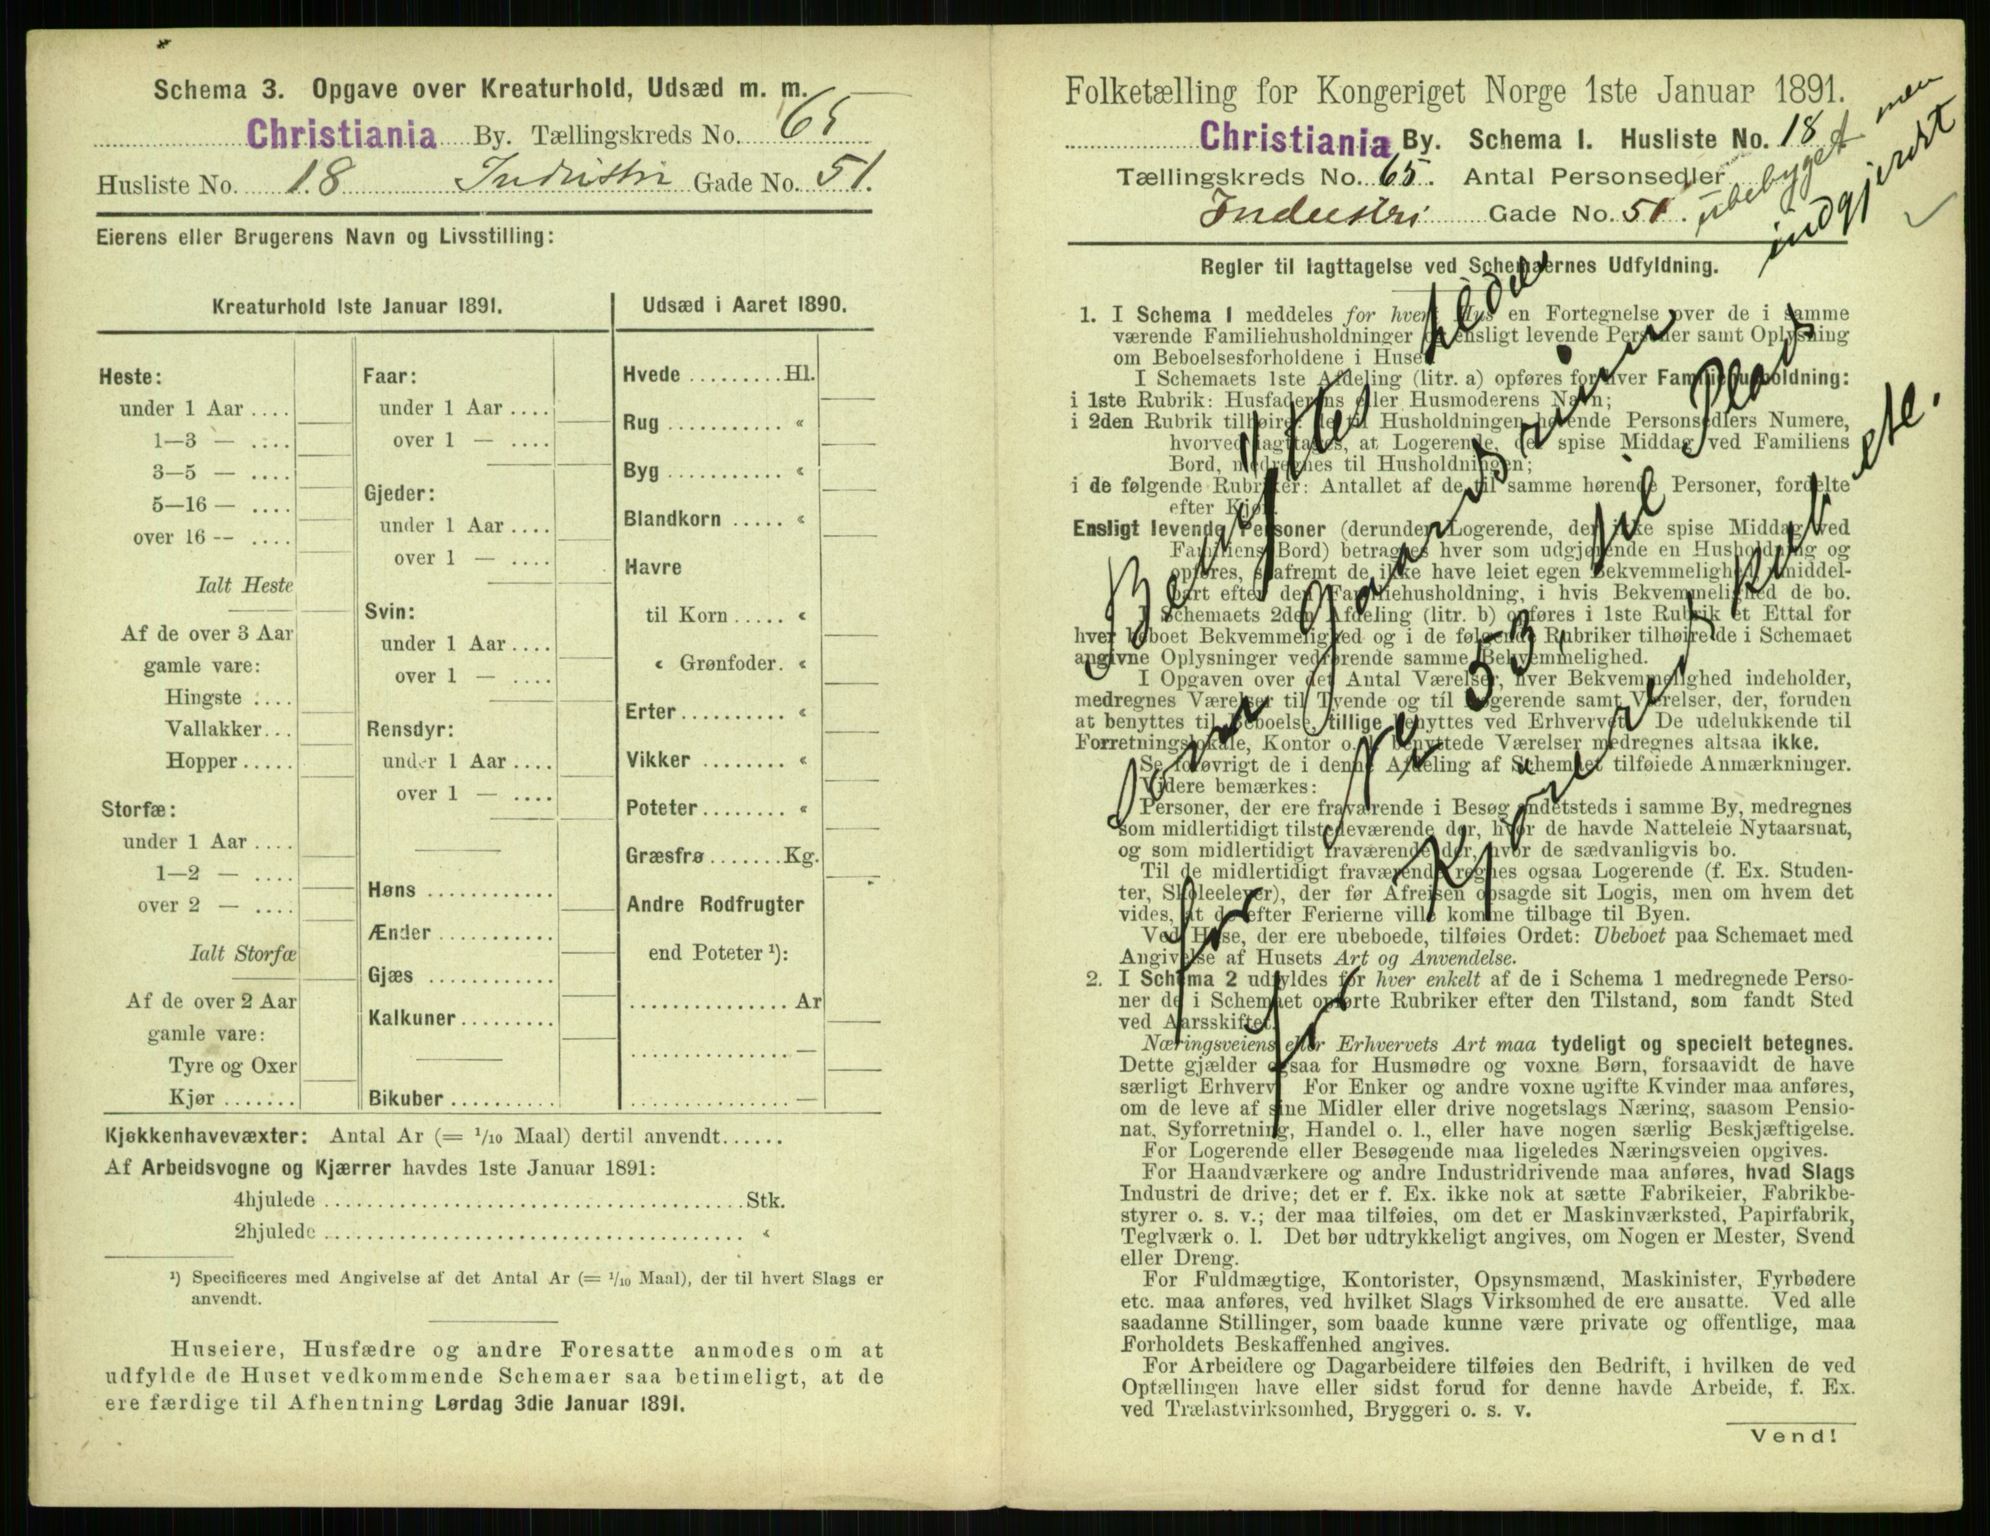 Schema 3. Opgave over Kreaturhold, Udsæd m. m.
Christiania By. Tællingskreds No. 65
Husliste No. 18 Industri Gade No. 51.
Eierens eller Brugerens Navn og Livsstilling:
Kreaturhold 1ste Januar 1891.
Heste:
under 1 Aar ....
1—3 — ....
3—5 — ....
5—16 — ....
over 16 -- ....
Ialt Heste
Af de over 3 Aar
gamle vare:
Hingste ....
Vallakker...
Hopper.....
Storfæ:
under 1 Aar ....
1—2 — ....
over 2 — ....
Ialt Storfæ
Af de over 2 Aar
gamle vare:
Tyre og Oxer
Kjør.......
Faar:
under 1 Aar ....
over 1 — ....
Gjeder:
under 1 Aar ....
over 1 — ....
Svin:
under 1 Aar ....
over 1 — ....
Rensdyr:
under 1 Aar ....
over 1 — ....
Høns ............
Ænder ...........
Gjæs ............
Kalkuner.........
Bikuber ..........
Udsæd i Aaret 1890.
Hvede .........Hl.
Rug ........... «
Byg ........... «
Blandkorn ..... «
Havre
til Korn ..... «
« Grønfoder. «
Erter.......... «
Vikker ........ «
Poteter........ «
Græsfrø.......Kg.
Andre Rodfrugter
end Poteter ¹):
...............Ar
...............—
...............—
Kjøkkenhavevæxter: Antal Ar (= ¹/₁₀ Maal) dertil anvendt......
Af Arbeidsvogne og Kjærrer havdes 1ste Januar 1891:
4hjulede ......................................Stk.
2hjulede ...................................... «
¹) Specificeres med Angivelse af det Antal Ar (= ¹/₁₀ Maal), der til hvert Slags er
anvendt.
Huseiere, Husfædre og andre Foresatte anmodes om at
udfylde de Huset vedkommende Schemaer saa betimeligt, at de
ere færdige til Afhentning Lørdag 3die Januar 1891.
Folketælling for Kongeriget Norge 1ste Januar 1891.
Christiania By. Schema I. Husliste No. 18
Tællingskreds No. 65. Antal Personsedler
Industri Gade No. 51.
ubebygget men
indgjerdet
Regler til Iagttagelse ved Schemaernes Udfyldning.
1. I Schema 1 meddeles for hvert Hus en Fortegnelse over de i samme
værende Familiehusholdninger og ensligt levende Personer samt Oplysning
om Beboelsesforholdene i Huset.
I Schemaets 1ste Afdeling (litr. a) opføres for hver Familiehusholdning:
i 1ste Rubrik: Husfaderens eller Husmoderens Navn;
i 2den Rubrik tilhøire: de til Husholdningen hørende Personsedlers Numere,
hvorved iagttages, at Logerende, der spise Middag ved Familiens
Bord, medregnes til Husholdningen;
i de følgende Rubriker: Antallet af de til samme hørende Personer, fordelte
efter Kjøn.
Ensligt levende Personer (derunder Logerende, der ikke spise Middag ved
Familiens Bord) betragtes hver som udgjørende en Husholdning og
opføres, saafremt de ikke have leiet egen Bekvemmelighed umiddel-
bart efter den Familiehusholdning, i hvis Bekvemmelighed de bo.
I Schemaets 2den Afdeling (litr. b) opføres i 1ste Rubrik et Ettal for
hver beboet Bekvemmelighed og i de følgende Rubriker tilhøire de i Schemaet
angivne Oplysninger vedrørende samme Bekvemmelighed.
I Opgaven over det Antal Værelser, hver Bekvemmelighed indeholder,
medregnes Værelser til Tyende og til Logerende samt Værelser, der, foruden
at benyttes til Beboelse, tillige benyttes ved Erhvervet. De udelukkende til
Forretningslokale, Kontor o. l. benyttede Værelser medregnes altsaa ikke.
Se forøvrigt de i denne Afdeling af Schemaet tilføiede Anmærkninger.
Videre bemærkes:
Personer, der ere fraværende i Besøg andetsteds i samme By, medregnes
som midlertidigt tilstedeværende der, hvor de havde Natteleie Nytaarsnat,
og som midlertidigt fraværende der, hvor de sædvanligvis bo.
Til de midlertidigt fraværende regnes ogsaa Logerende (f. Ex. Studen-
ter, Skoleelever), der før Afreisen opsagde sit Logis, men om hvem det
vides, at de efter Ferierne ville komme tilbage til Byen.
Ved Huse, der ere ubeboede, tilføies Ordet: Ubeboet paa Schemaet med
Angivelse af Husets Art og Anvendelse.
2. I Schema 2 udfyldes for hver enkelt af de i Schema 1 medregnede Perso-
ner de i Schemaet opførte Rubriker efter den Tilstand, som fandt Sted
ved Aarsskiftet.
Næringsveiens eller Erhvervets Art maa tydeligt og specielt betegnes.
Dette gjælder ogsaa for Husmødre og voxne Børn, forsaavidt de have
særligt Erhverv. For Enker og andre voxne ugifte Kvinder maa anføres,
om de leve af sine Midler eller drive nogetslags Næring, saasom Pensio-
nat, Syforretning, Handel o. l., eller have nogen særlig Beskjæftigelse.
For Logerende eller Besøgende maa ligeledes Næringsveien opgives.
For Haandværkere og andre Industridrivende maa anføres, hvad Slags
Industri de drive; det er f. Ex. ikke nok at sætte Fabrikeier, Fabrikbe-
styrer o. s. v.; der maa tilføies, om det er Maskinværksted, Papirfabrik,
Teglværk o. l. Det bør udtrykkeligt angives, om Nogen er Mester, Svend
eller Dreng.
For Fuldmægtige, Kontorister, Opsynsmænd, Maskinister, Fyrbødere
etc. maa anføres, ved hvilket Slags Virksomhed de ere ansatte. Ved alle
saadanne Stillinger, som baade kunne være private og offentlige, maa
Forholdets Beskaffenhed angives.
For Arbeidere og Dagarbeidere tilføies den Bedrift, i hvilken de ved
Optællingen have eller sidst forud for denne havde Arbeide, f. Ex.
ved Trælastvirksomhed, Bryggeri o. s. v.
Vend!
Benyttes
som Gaardsrum
for No 53, til Plads
for